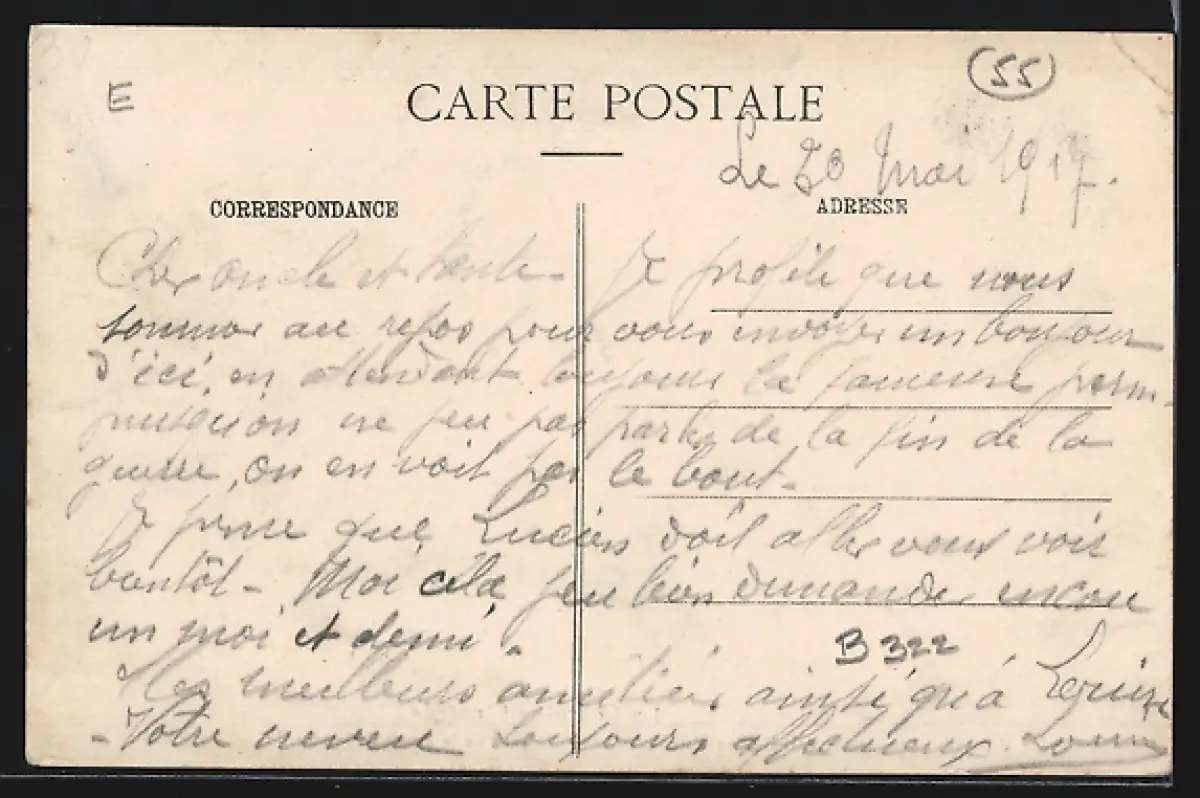 E
(55)
CARTE POSTALE
Le 20 Mai 1917.
CORRESPONDANCE
ADRESSE
Cher oncle et tante - Je profite que nous
sommes au repos pour vous envoyer un bonjour
d'ici, en attendant toujours la fameuse perm.
puisqu'on ne peu pas parler de la fin de la
guerre, on en voit pas le bout.
Je pense que Lucien doit aller vous voir
bientôt - Moi cela peu bien demander encore
un moi et demi.
B 322
Mes meilleurs amitiés ainsi qu'à
- Votre neveu toujours affectueux.